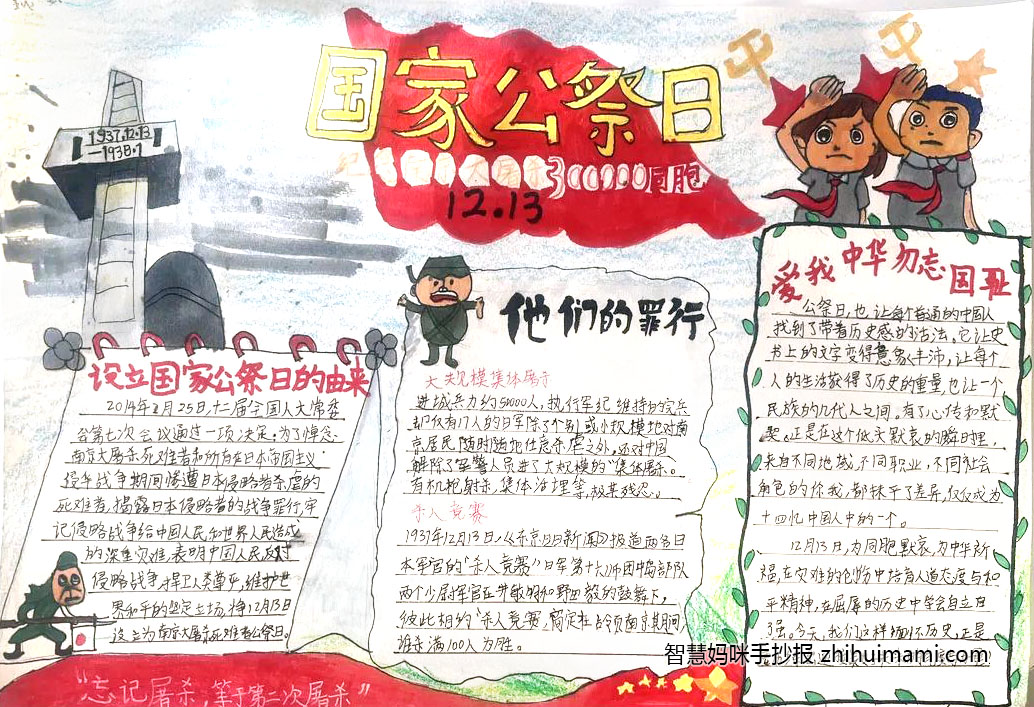 国家公祭日
大屠杀300000同胞
12.13
1937.12.13
—1938.1
设立国家公祭日的由来
2014年2月25日,十二届全国人大常委
会第七次会议通过一项决定:为了悼念
南京大屠杀死难者和所有在日本帝国主义
侵华战争期间惨遭日本侵略者杀虐的
死难者,揭露日本侵略者的战争罪行,牢
记侵略战争给中国人民和世界人民造成
的深重灾难,表明中国人民反对
侵略战争,捍卫人类尊严,维护世
界和平的坚定立场,将12月13日
设立为南京大屠杀死难者公祭日。
他们的罪行
大规模集体屠杀
进城兵力约50000人,执行军纪维持的宪兵
却仅有17人的日军除了个别或小规模地对南
京居民随时随地任意杀虐之外,还对中国
解除了军警人员进了大规模的“集体屠杀。
有机枪射杀,集体活埋等,极其残忍。
杀人竞赛
1937年12月13日,《东京日日新闻》报道两名日
本军官的“杀人竞赛”日军第十六师团中岛部队
两个少尉军官在井敏明和野田毅的鼓舞下,
彼此相约“杀人竞赛,商定在占领南京期间,
谁杀满100人为胜。
爱我中华勿忘国耻
公祭日,也让每个普通的中国人
找到了带着历史感的活法。它让史
书上的文字变得意象丰沛,让每个
人的生活获得了历史的重量,也让一个
民族的几代人之间。有了心传和默
契。正是在这个低头默哀的瞬日里,
来自不同地域,不同职业,不同社会
角色的你我,都抹平了差异,仅仅成为
十四忆中国人中的一个。
12月13日,为同胞默哀,为中华祈
福,在灾难的创伤中培育人道态度与和
平精神,在屈辱的历史中学会自立自
强。今天,我们这样缅怀历史,正是
“忘记屠杀,等于第二次屠杀”
智慧妈咪手抄报 zhihuimami.com